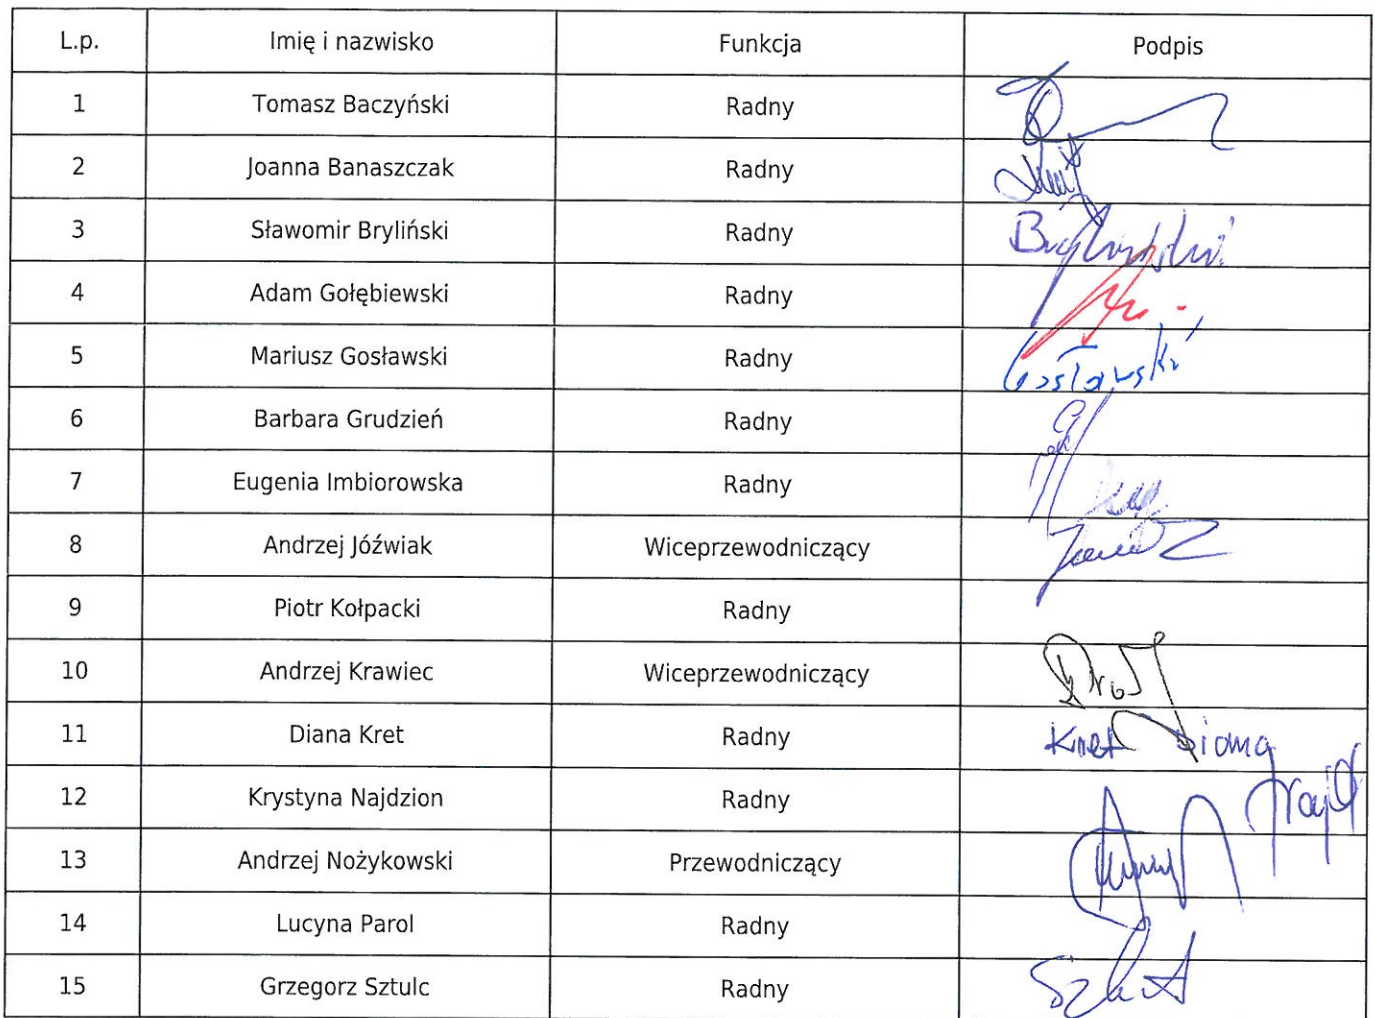 L.p. Imię i nazwisko Funkcja Podpis
1 Tomasz Baczyński Radny
2 Joanna Banaszczak Radny
3 Sławomir Bryliński Radny
4 Adam Gołębiewski Radny
5 Mariusz Gosławski Radny Gosławski
6 Barbara Grudzień Radny
7 Eugenia Imbiorowska Radny
8 Andrzej Jóźwiak Wiceprzewodniczący
9 Piotr Kołpacki Radny
10 Andrzej Krawiec Wiceprzewodniczący
11 Diana Kret Radny Kret Diana
12 Krystyna Najdzion Radny
13 Andrzej Nożykowski Przewodniczący
14 Lucyna Parol Radny
15 Grzegorz Sztulc Radny